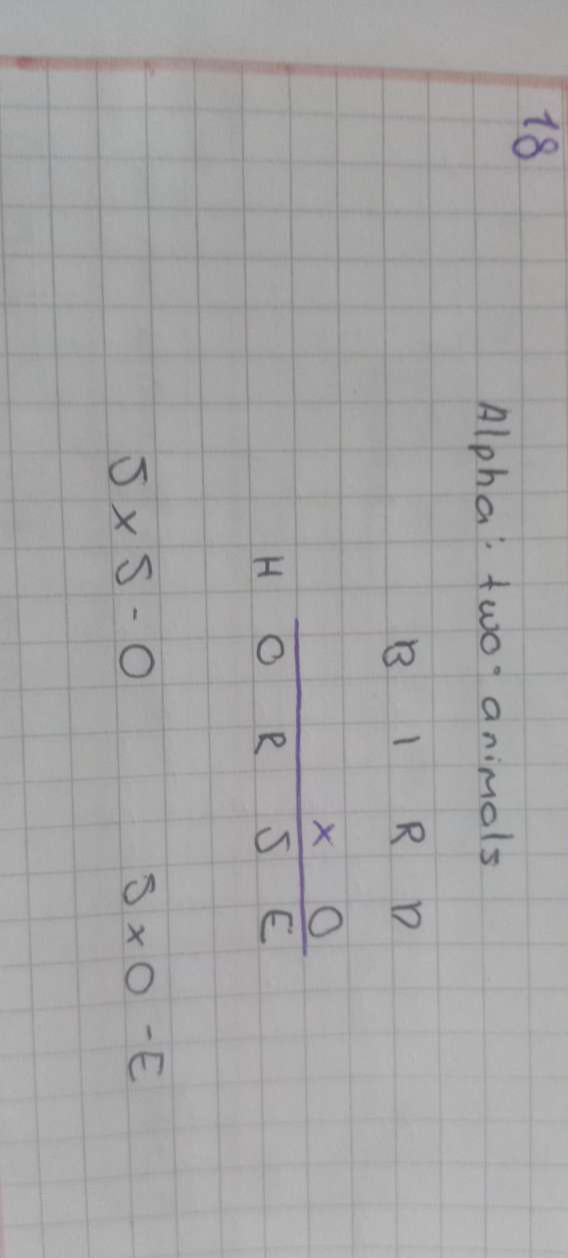 18
Alpha: two animals
B I R D
x O
H O R S E
S x S - O S x O - E